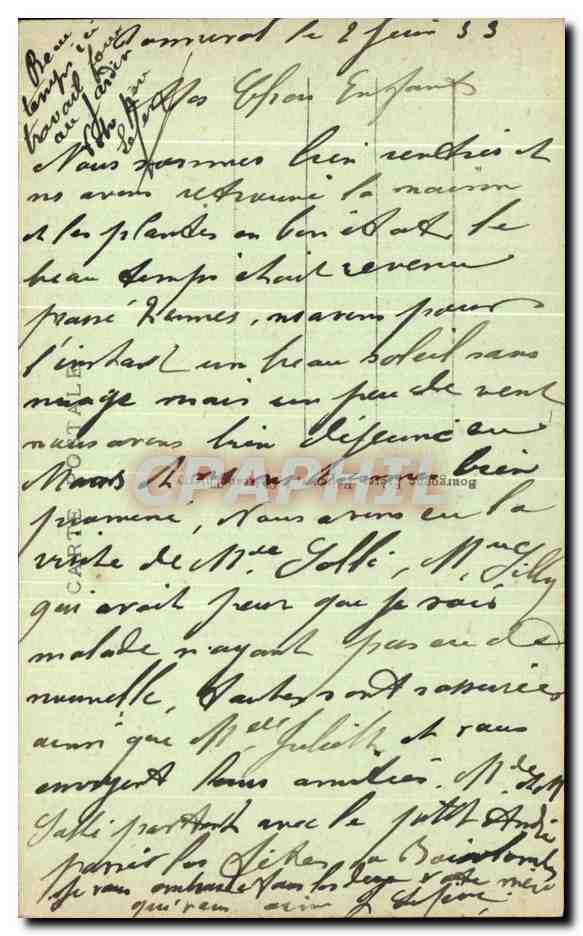 le 2 Juin 33
Mes Chers Enfants
Nous sommes bien rentrés et
ns avons retrouvé la maison
et les plantes en bon état, le
beau temps était revenu
passé Rennes, ns avons pour
l'instant un beau soleil sans
nuage mais un peu de vent
nous avons bien déjeuné au
Mans et nous bien
promené, Nous avons eu la
visite de Mme Mme
qui avait peur que je sois
malade n'ayant pas eu de
nouvelle, toutes sont rassurées
ainsi que Mlle Juliette et vous
envoyent leurs amitiés. Mde
partant avec le petit André
passer les fêtes à
Je vous embrasse tous les deux votre mère
qui vous aime
Beau
temps ici
travail pour
au jardin
CARTE POSTALE
CPAPHIL